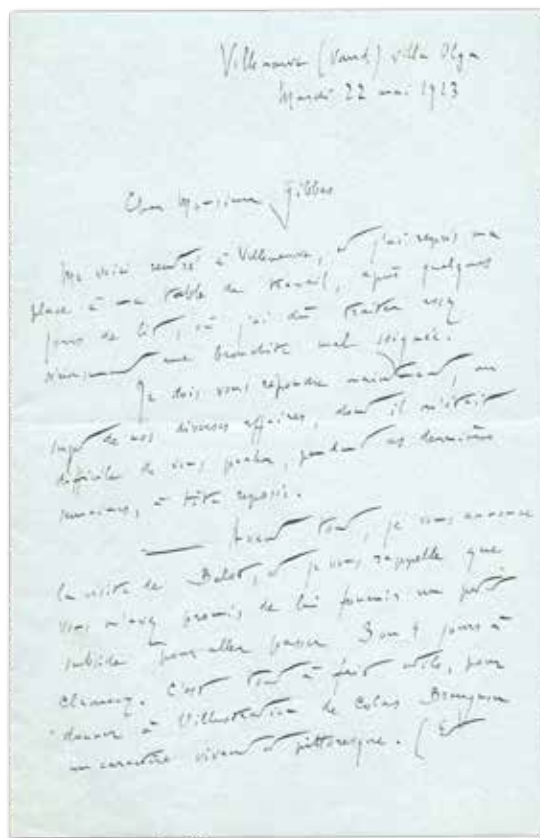 Villeneuve (Vaud) villa Olga
Mardi 22 mai 1923
Cher Monsieur Gibbes
Me voici rentré à Villeneuve, et j'ai repris ma
place à ma table de travail, après quelques
jours de lit, où j'ai dû traiter assez
sérieusement une bronchite mal soignée.
Je dois vous répondre maintenant, au
sujet de nos diverses affaires, dont il m'était
difficile de vous parler, pendant ces dernières
semaines, à tête reposée.
Avant tout, je vous annonce
la visite de Belot, et je vous rappelle que
vous m'avez promis de lui fournir un petit
subside pour aller passer 3 ou 4 jours à
Clamecy. C'est tout à fait utile, pour
donner à l'illustration de Colas Breugnon
un caractère vivant et pittoresque. (Et